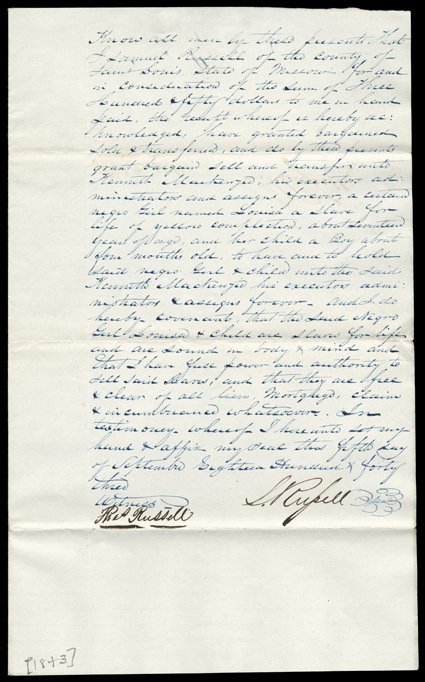 Know all men by these presents that
I Samuel Russell of the County of
Saint Louis State of Missouri for and
in consideration of the sum of Three
Hundred & fifty dollars to me in hand
paid, the receipt whereof is hereby ac:
knowledged, have granted bargained
sold & transferred, and do by these presents
grant bargain sell and transfer unto
Kenneth Mackenzie, his executors ad:
ministrators and assigns forever, a certain
negro Girl named Louisa a Slave for
life of yellow complection, about seventeen
years of age, and her child a Boy about
four months old, to have and to hold
said negro Girl & child unto the said
Kenneth Mackenzie his executors admi:
nistrators & assigns forever. And I do
hereby covenant, that the said Negro
Girl Louisa & child are slaves for life
and are sound in body & mind and
that I have full power and authority to
sell said slaves, and that they are free
& clear of all lien, Mortgage, claim
& incumbrance whatsoever. In
testimony whereof I hereunto set my
hand & affix my seal this fifth day
of September Eighteen Hundred & forty
three
Witness
Thos Russell
S Russell
[1843]